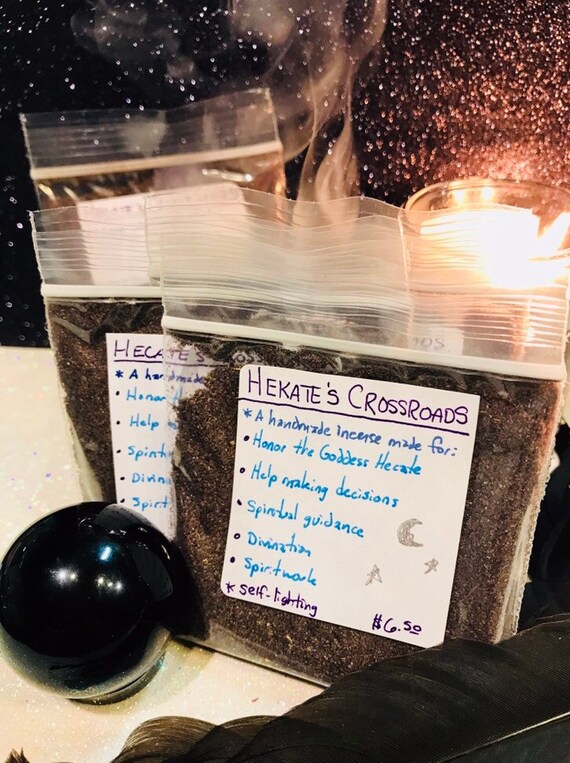 HEKATE'S CROSSROADS
* A handmade incense made for:
• Honor the Goddess Hecate
• Help making decisions
• Spiritual guidance
• Divination
• Spiritwork
* self-lighting
$6.50
HECATE'S
* A handmade
• Honor
• Help
• Divin